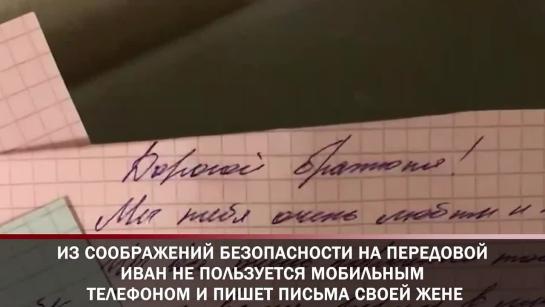 Дорогой братюня!
Мы тебя очень любим и
ИЗ СООБРАЖЕНИЙ БЕЗОПАСНОСТИ НА ПЕРЕДОВОЙ
ИВАН НЕ ПОЛЬЗУЕТСЯ МОБИЛЬНЫМ
ТЕЛЕФОНОМ И ПИШЕТ ПИСЬМА СВОЕЙ ЖЕНЕ